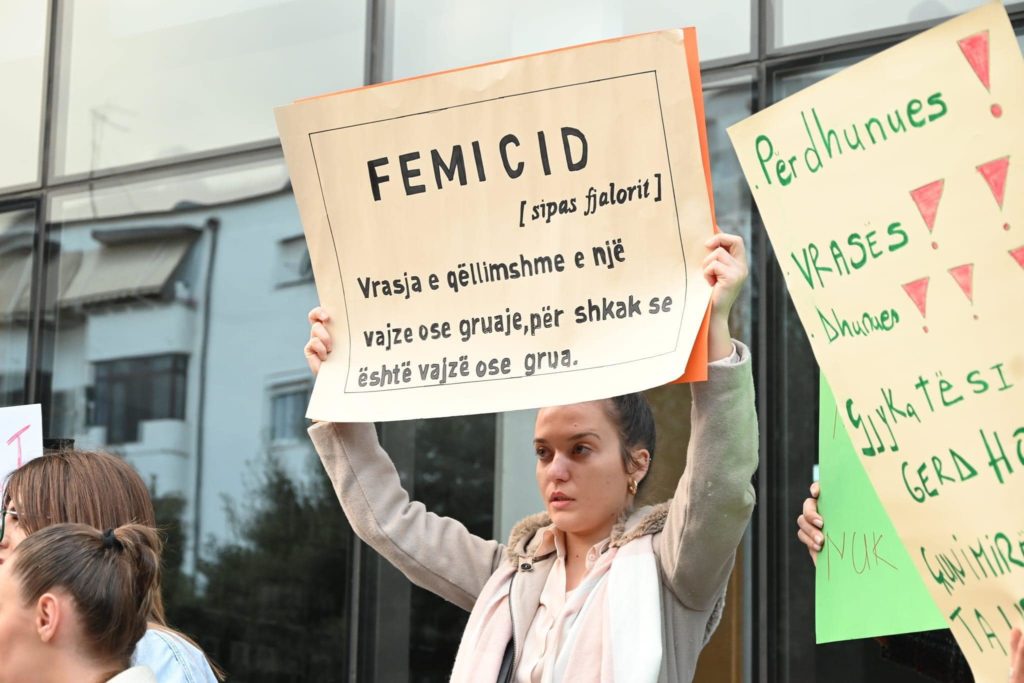 FEMICID
[sipas fjalorit]
Vrasja e qëllimshme e një
vajze ose gruaje,për shkak se
është vajzë ose grua.
Përdhunues !
VRASËS !!
Dhunues !!!
Gjykatësi
GERDH
NUK